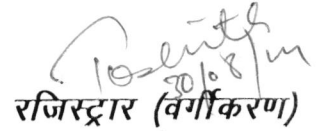 30/08/
रजिस्ट्रार (वर्गीकरण)